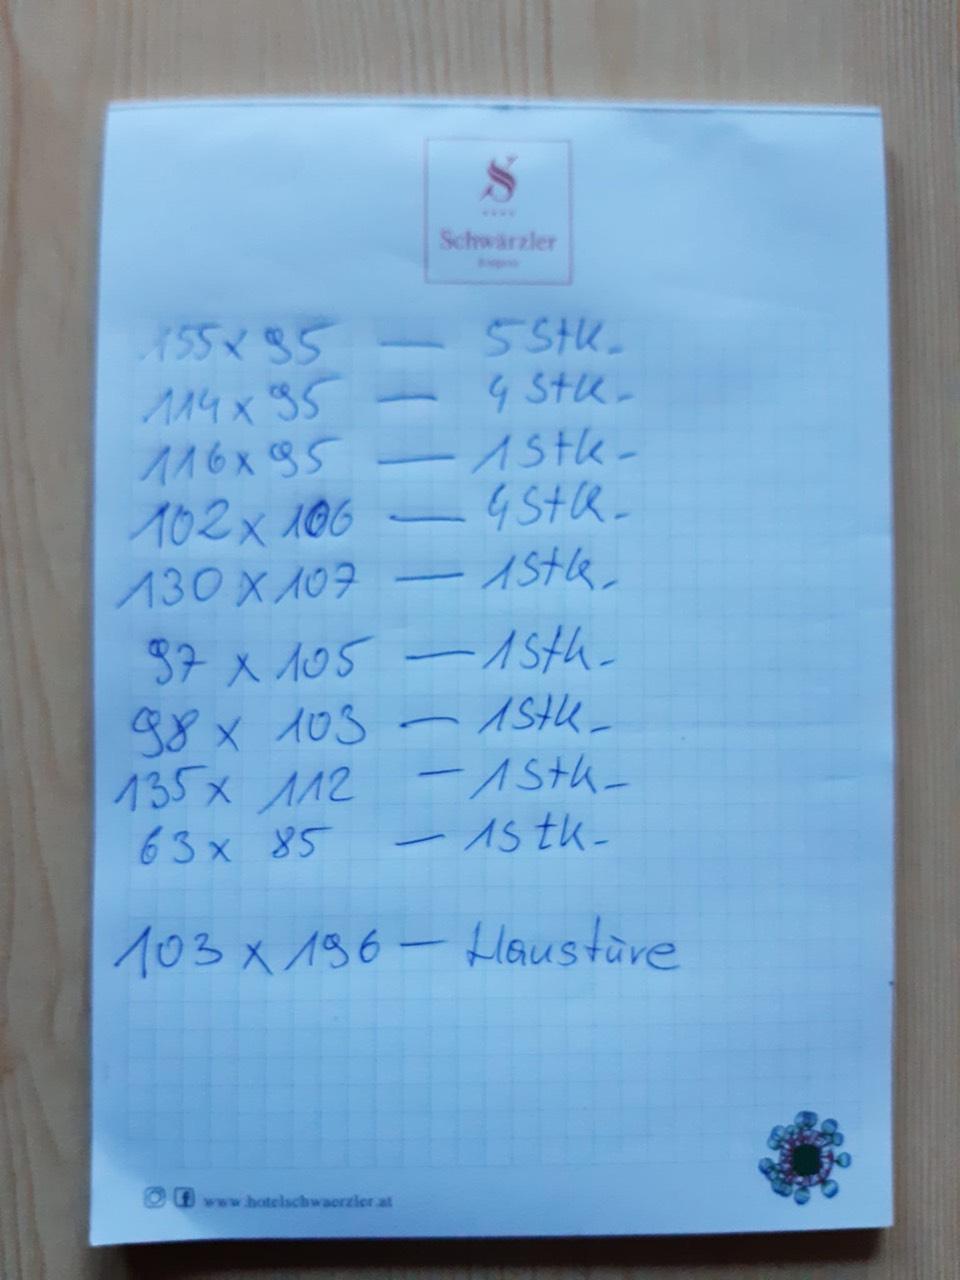 S
Schwärzler
Bregenz
155 x 95 — 5 Stk.
114 x 95 — 4 Stk.
116 x 95 — 1 Stk.
102 x 106 — 4 Stk.
130 x 107 — 1 Stk.
97 x 105 — 1 Stk.
98 x 103 — 1 Stk.
135 x 112 — 1 Stk.
63 x 85 — 1 Stk.
103 x 196 — Haustüre
www.hotelschwaerzler.at